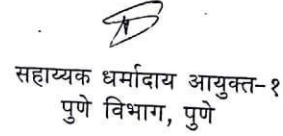 सहाय्यक धर्मादाय आयुक्त-१
पुणे विभाग, पुणे